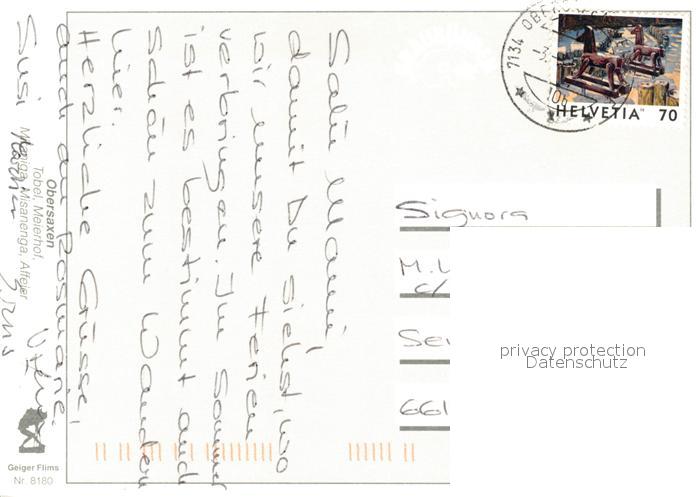 Salü Mami,
damit Du siehst, wo
wir unsere Ferien
verbringen. Im Sommer
ist es bestimmt auch
schön zum Wandern
hier.
Herzliche Grüsse,
auch an Rosmarie.
Susi
Obersaxen
Tobel, Meierhof,
Miraniga, Misanenga, Affeier
Geiger Flims
Nr. 8180
7134 OBER
HELVETIA 70
Signora
M.
c/
Se
661
privacy protection
Datenschutz